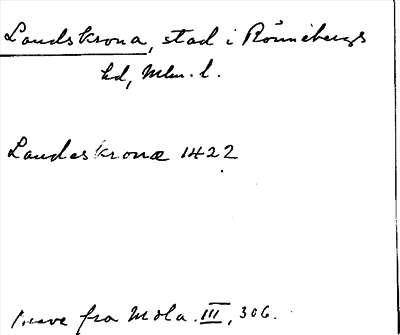 Landskrona, stad i Rönnebergs
hd, Mlm. l.
Landeskronæ 1422
fra Mola. III, 306.